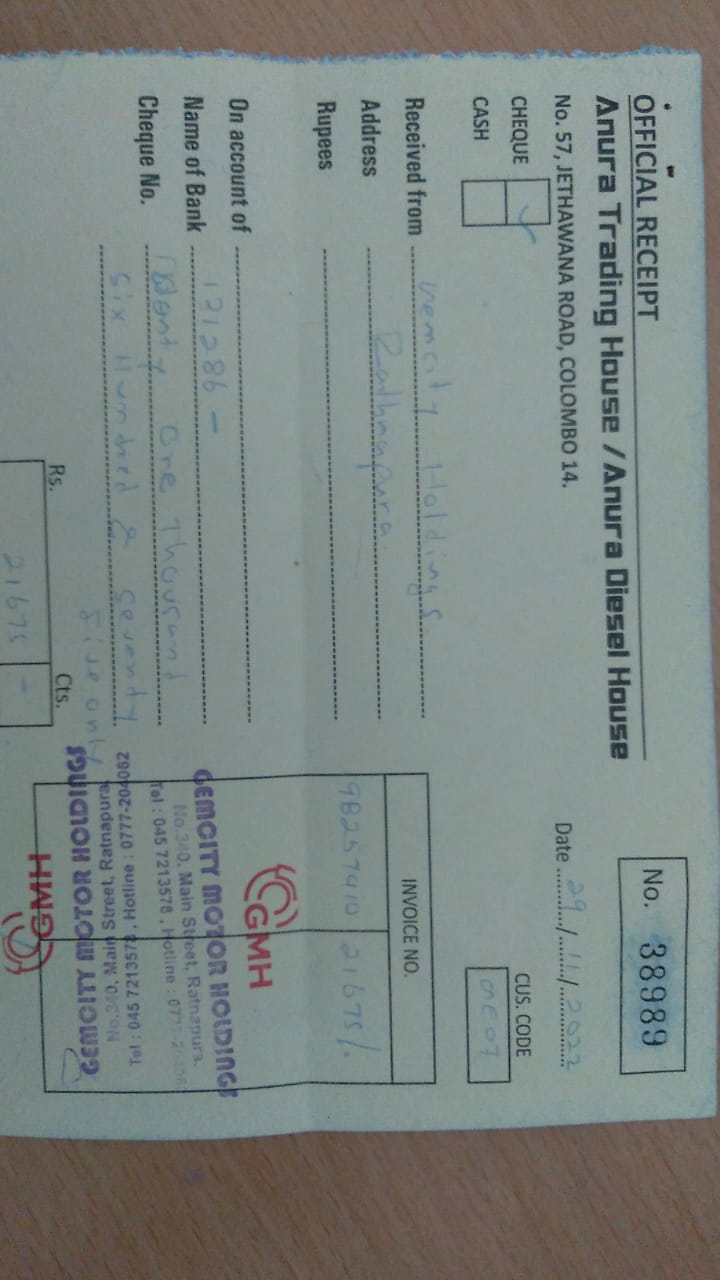 OFFICIAL RECEIPT
No. 38989
Anura Trading House / Anura Diesel House
No. 57, JETHAWANA ROAD, COLOMBO 14.
Date 29/11/2022
CHEQUE
CASH
CUS. CODE
Received from Gemcity Holdings
Address Rathnapura
Rupees
INVOICE NO.
98257410 21675/.
On account of
Name of Bank 131286 -
Cheque No. One Thousand
Six Hundred & Seventy
five only
Rs. Cts.
21675 -
GMH
GEMCITY MOTOR HOLDINGS
No.340, Main Street, Ratnapura.
Tel : 045 7213578 , Hotline :
GEMCITY MOTOR HOLDINGS
Main Street, Ratnapura.
Tel : 045 7213578 , Hotline : 0777-204062
GMH